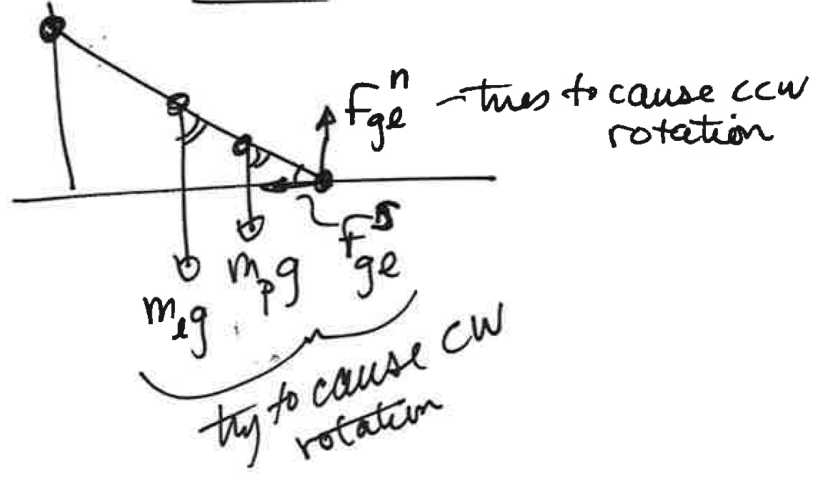 F^n_{ge} – tries to cause ccw
rotation
F^s_{ge}
m_p g
m_l g
try to cause CW
rotation